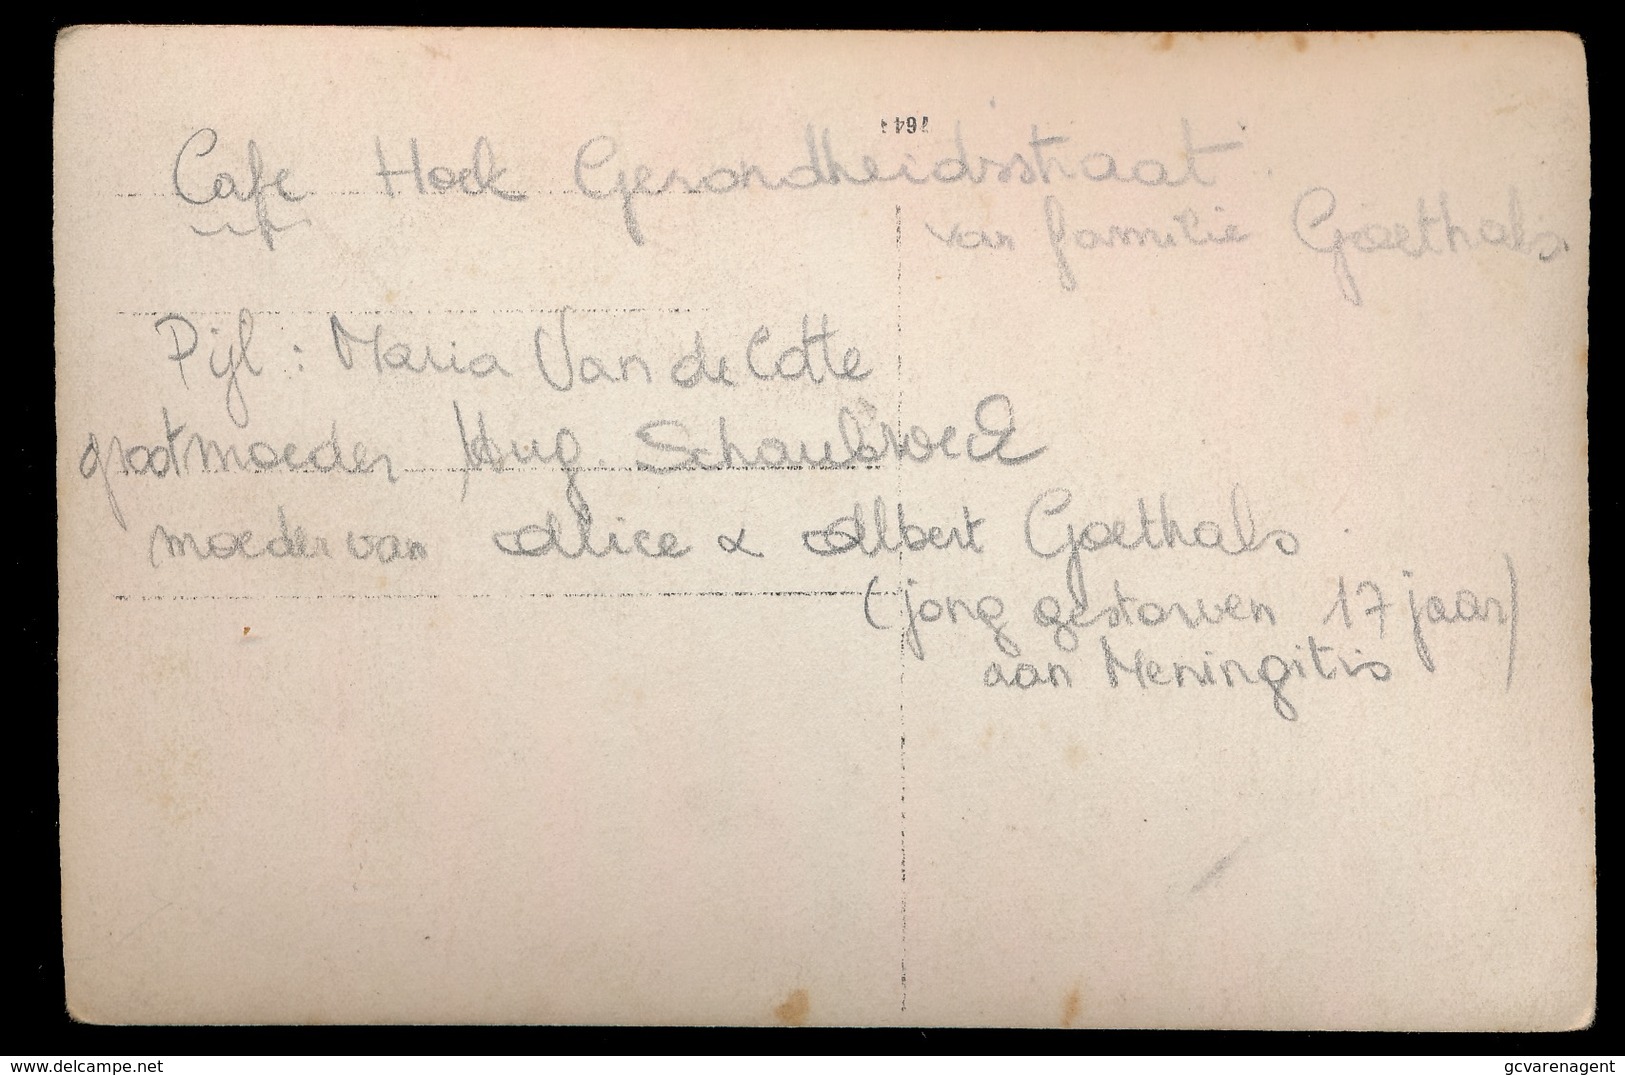 Cafe Hoek Gezondheidsstraat
van familie Goethals
Pijl : Maria Van de Cotte
grootmoeder Hug. Schaubroeck
moeder van Alice & Albert Goethals
(jong gestorven 17 jaar)
aan Meningitis
gcvarenagent